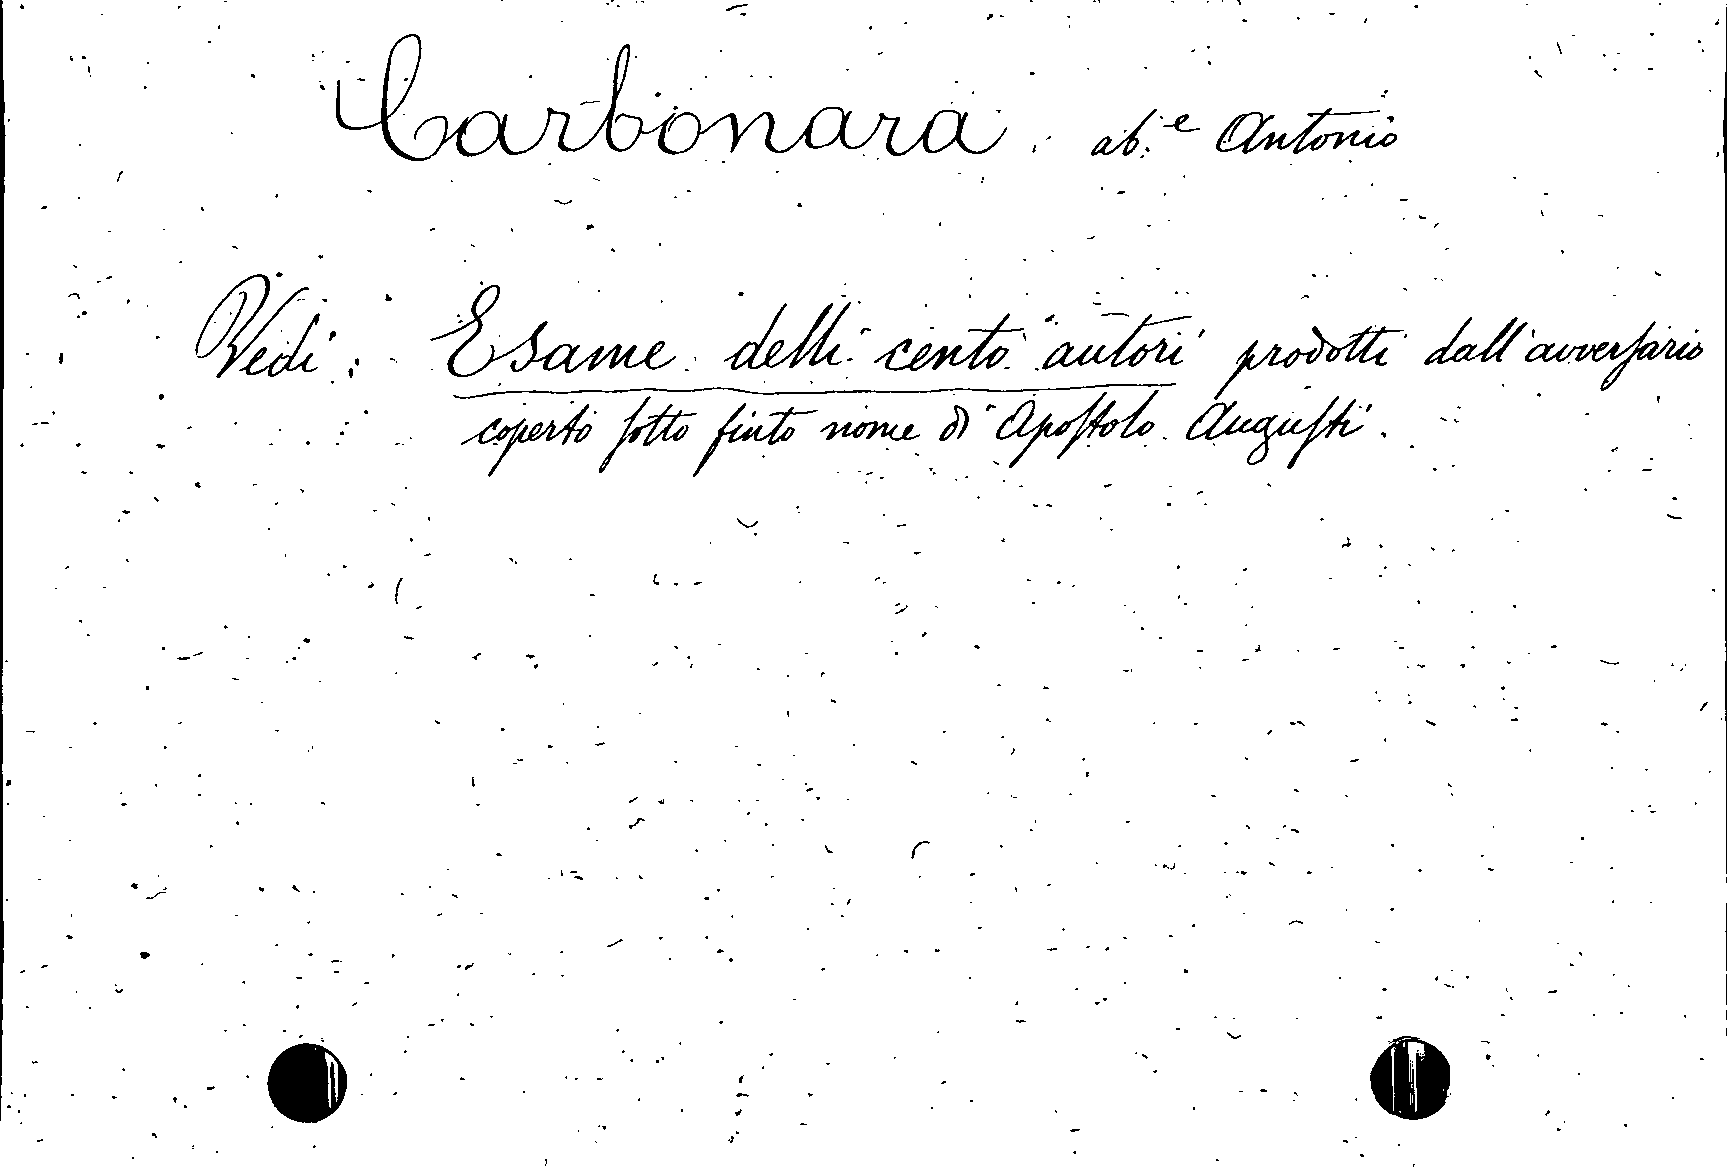 Carbonara. ab.e Antonio
Vedi: Esame delli cento autori prodotti dall'avverſario
coperto ſotto finto nome di Apoſtolo Auguſti.